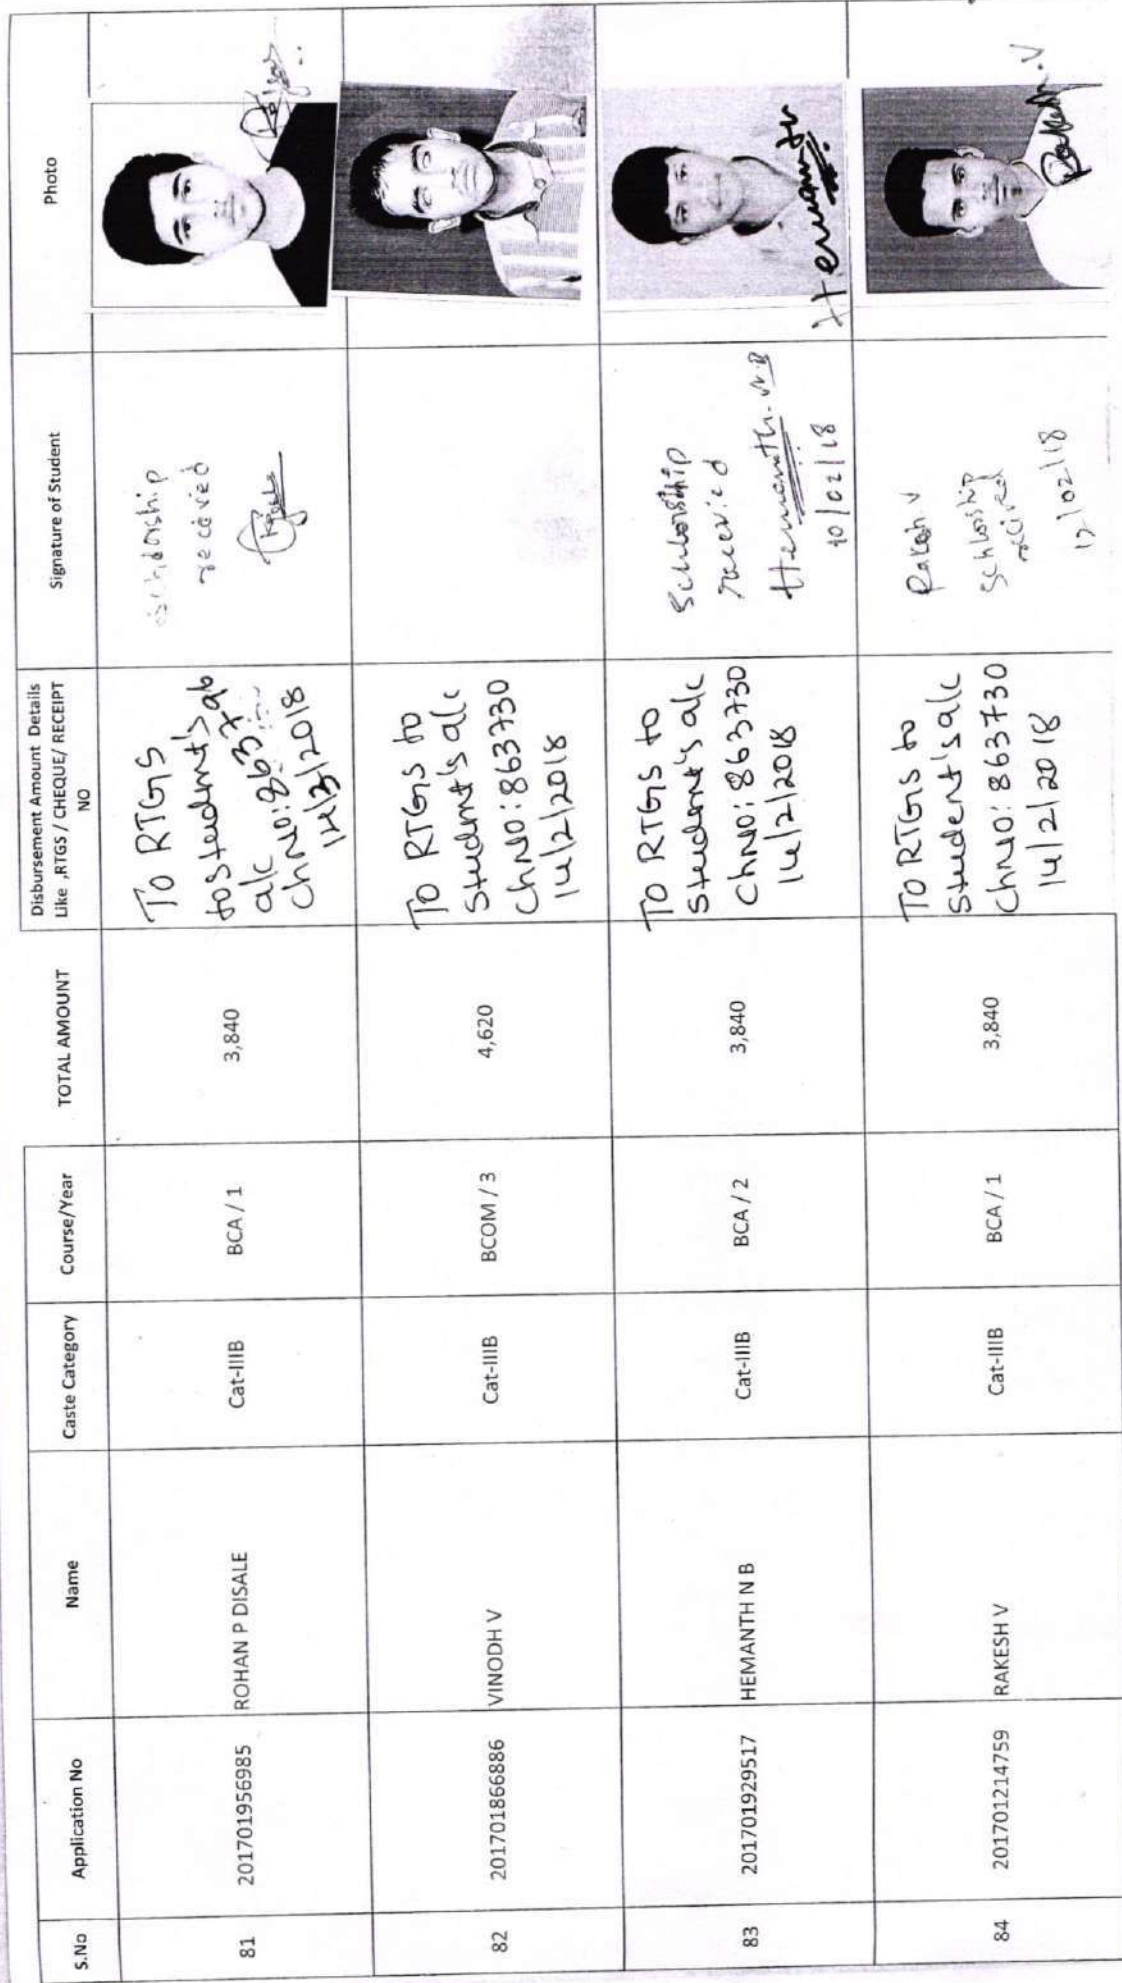 S.No
Application No
Name
Caste Category
Course/Year
TOTAL AMOUNT
Disbursement Amount Details
Like ,RTGS / CHEQUE/ RECEIPT
NO
Signature of Student
Photo
81
201701956985
ROHAN P DISALE
Cat-IIIB
BCA / 1
3,840
To RTGS
to student's
a/c
ChNo: 8637
2018
received
82
201701866886
VINODH V
Cat-IIIB
BCOM / 3
4,620
To RTGS to
Student's a/c
ChNo: 863730
14/2/2018
83
201701929517
HEMANTH N B
Cat-IIIB
BCA / 2
3,840
To RTGS to
Student's a/c
ChNo: 863730
14/2/2018
Schlorship
Hemanth. N.B
10/02/18
84
201701214759
RAKESH V
Cat-IIIB
BCA / 1
3,840
To RTGS to
Student's a/c
ChNo: 863730
14/2/2018
Rakesh V